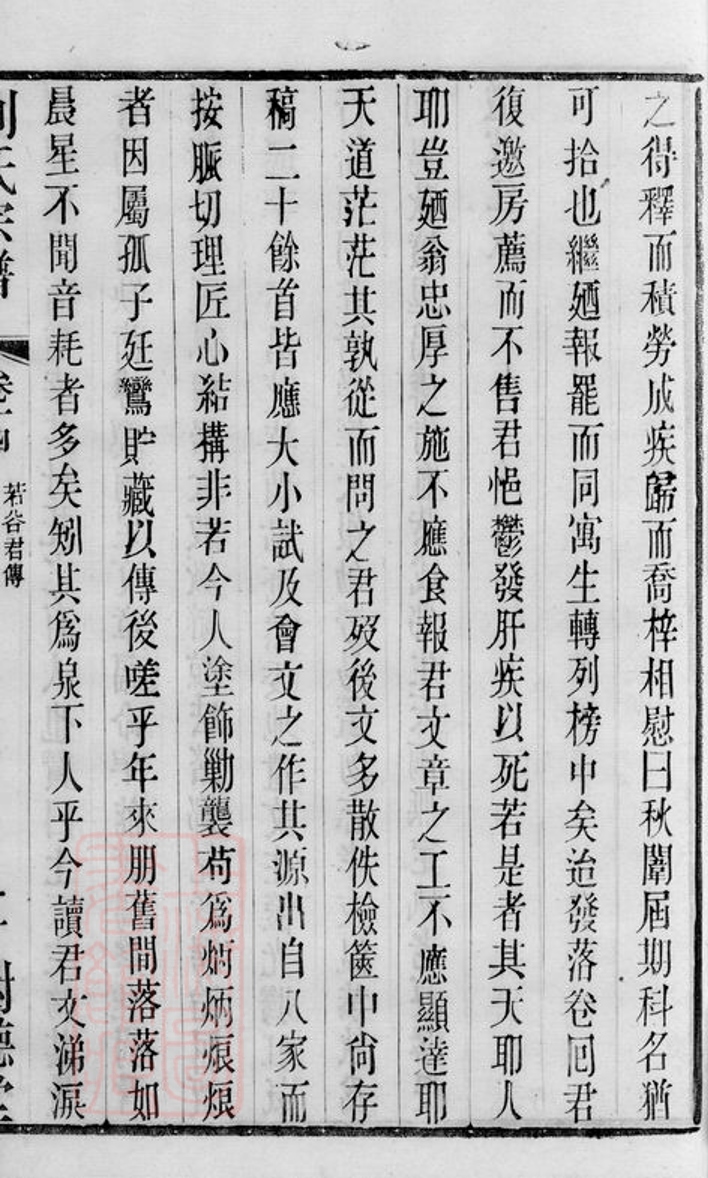 之得釋而積勞成疾歸而喬梓相慰曰秋闈屆期科名猶
可拾也繼廼報罷而同寓生轉列榜中矣迨發落卷回君
復邀房薦而不售君悒鬱發肝疾以死若是者其天耶人
耶豈廼翁忠厚之施不應食報君文章之工不應顯達耶
天道茫茫其孰從而問之君歿後文多散佚檢篋中尙存
稿二十餘首皆應大小試及會文之作其源出自八家而
按脈切理匠心結搆非若今人塗飾勦襲苟爲炳炳烺烺
者因屬孤子廷鸞貯藏以傳後嗟乎年來朋舊間落落如
晨星不聞音耗者多矣矧其爲泉下人乎今讀君文涕淚
氏宗譜
卷十四
若谷君傳